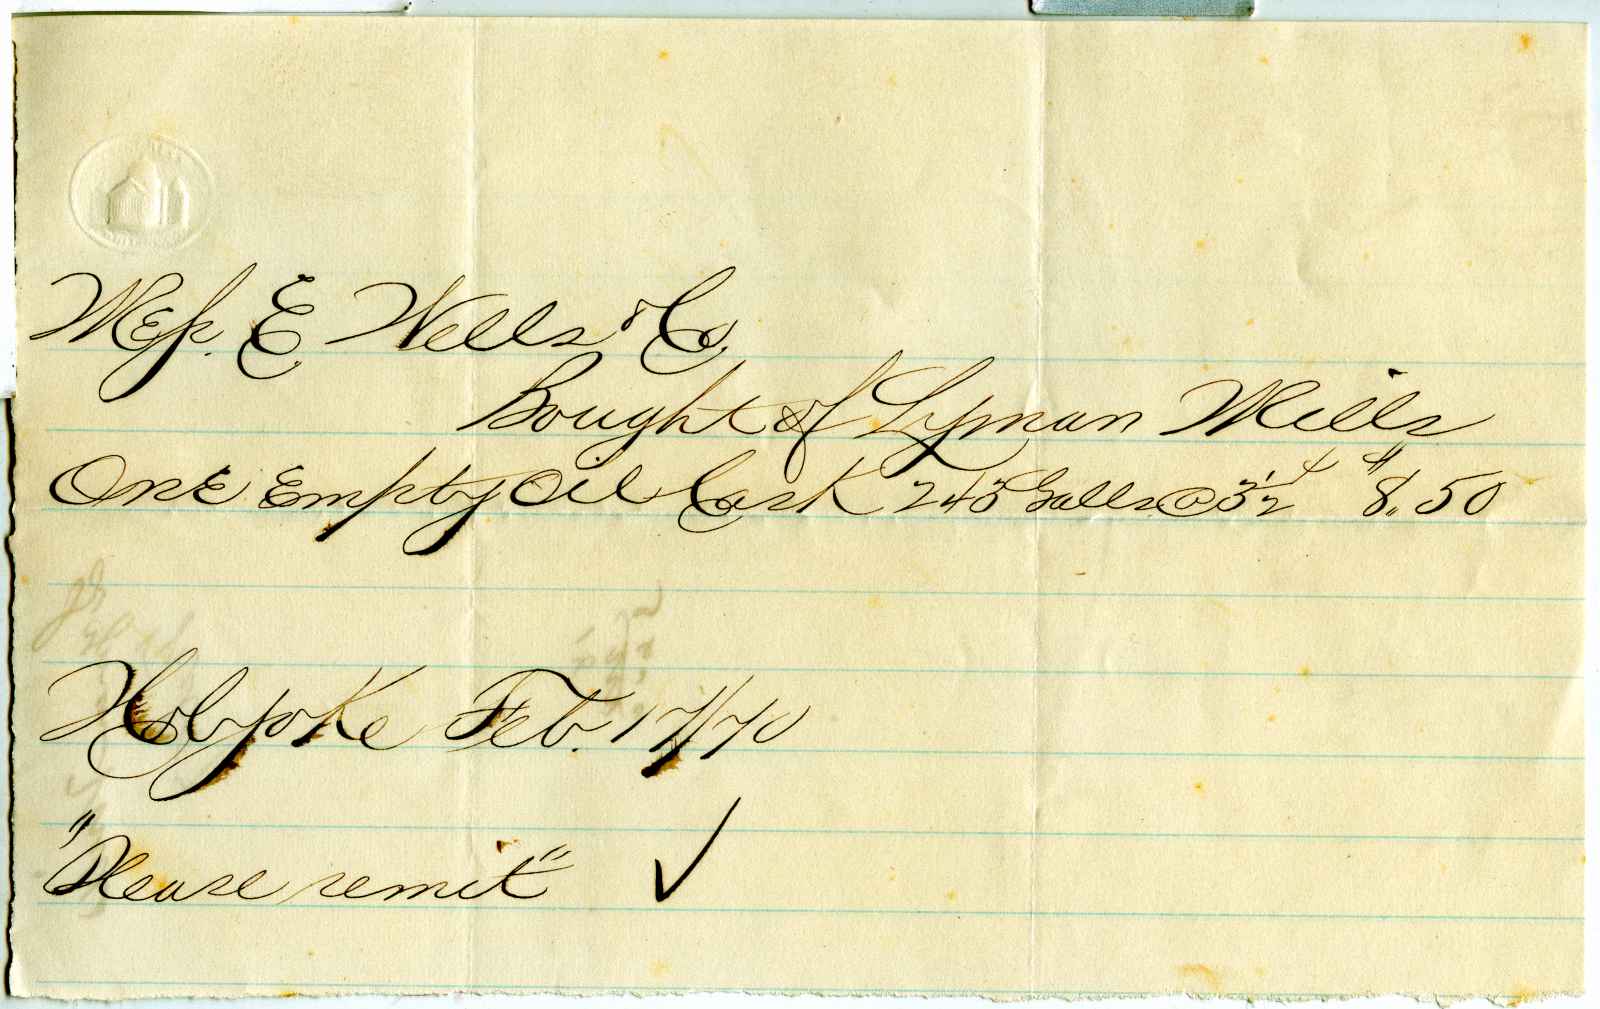 Mess. E. Wells & Co.
Bought of Lyman Mills
One Empty Oil Cask 243 Galls @ 3½ ¢ $8.50
Holyoke Feb. 17/70
"Please remit" ✓